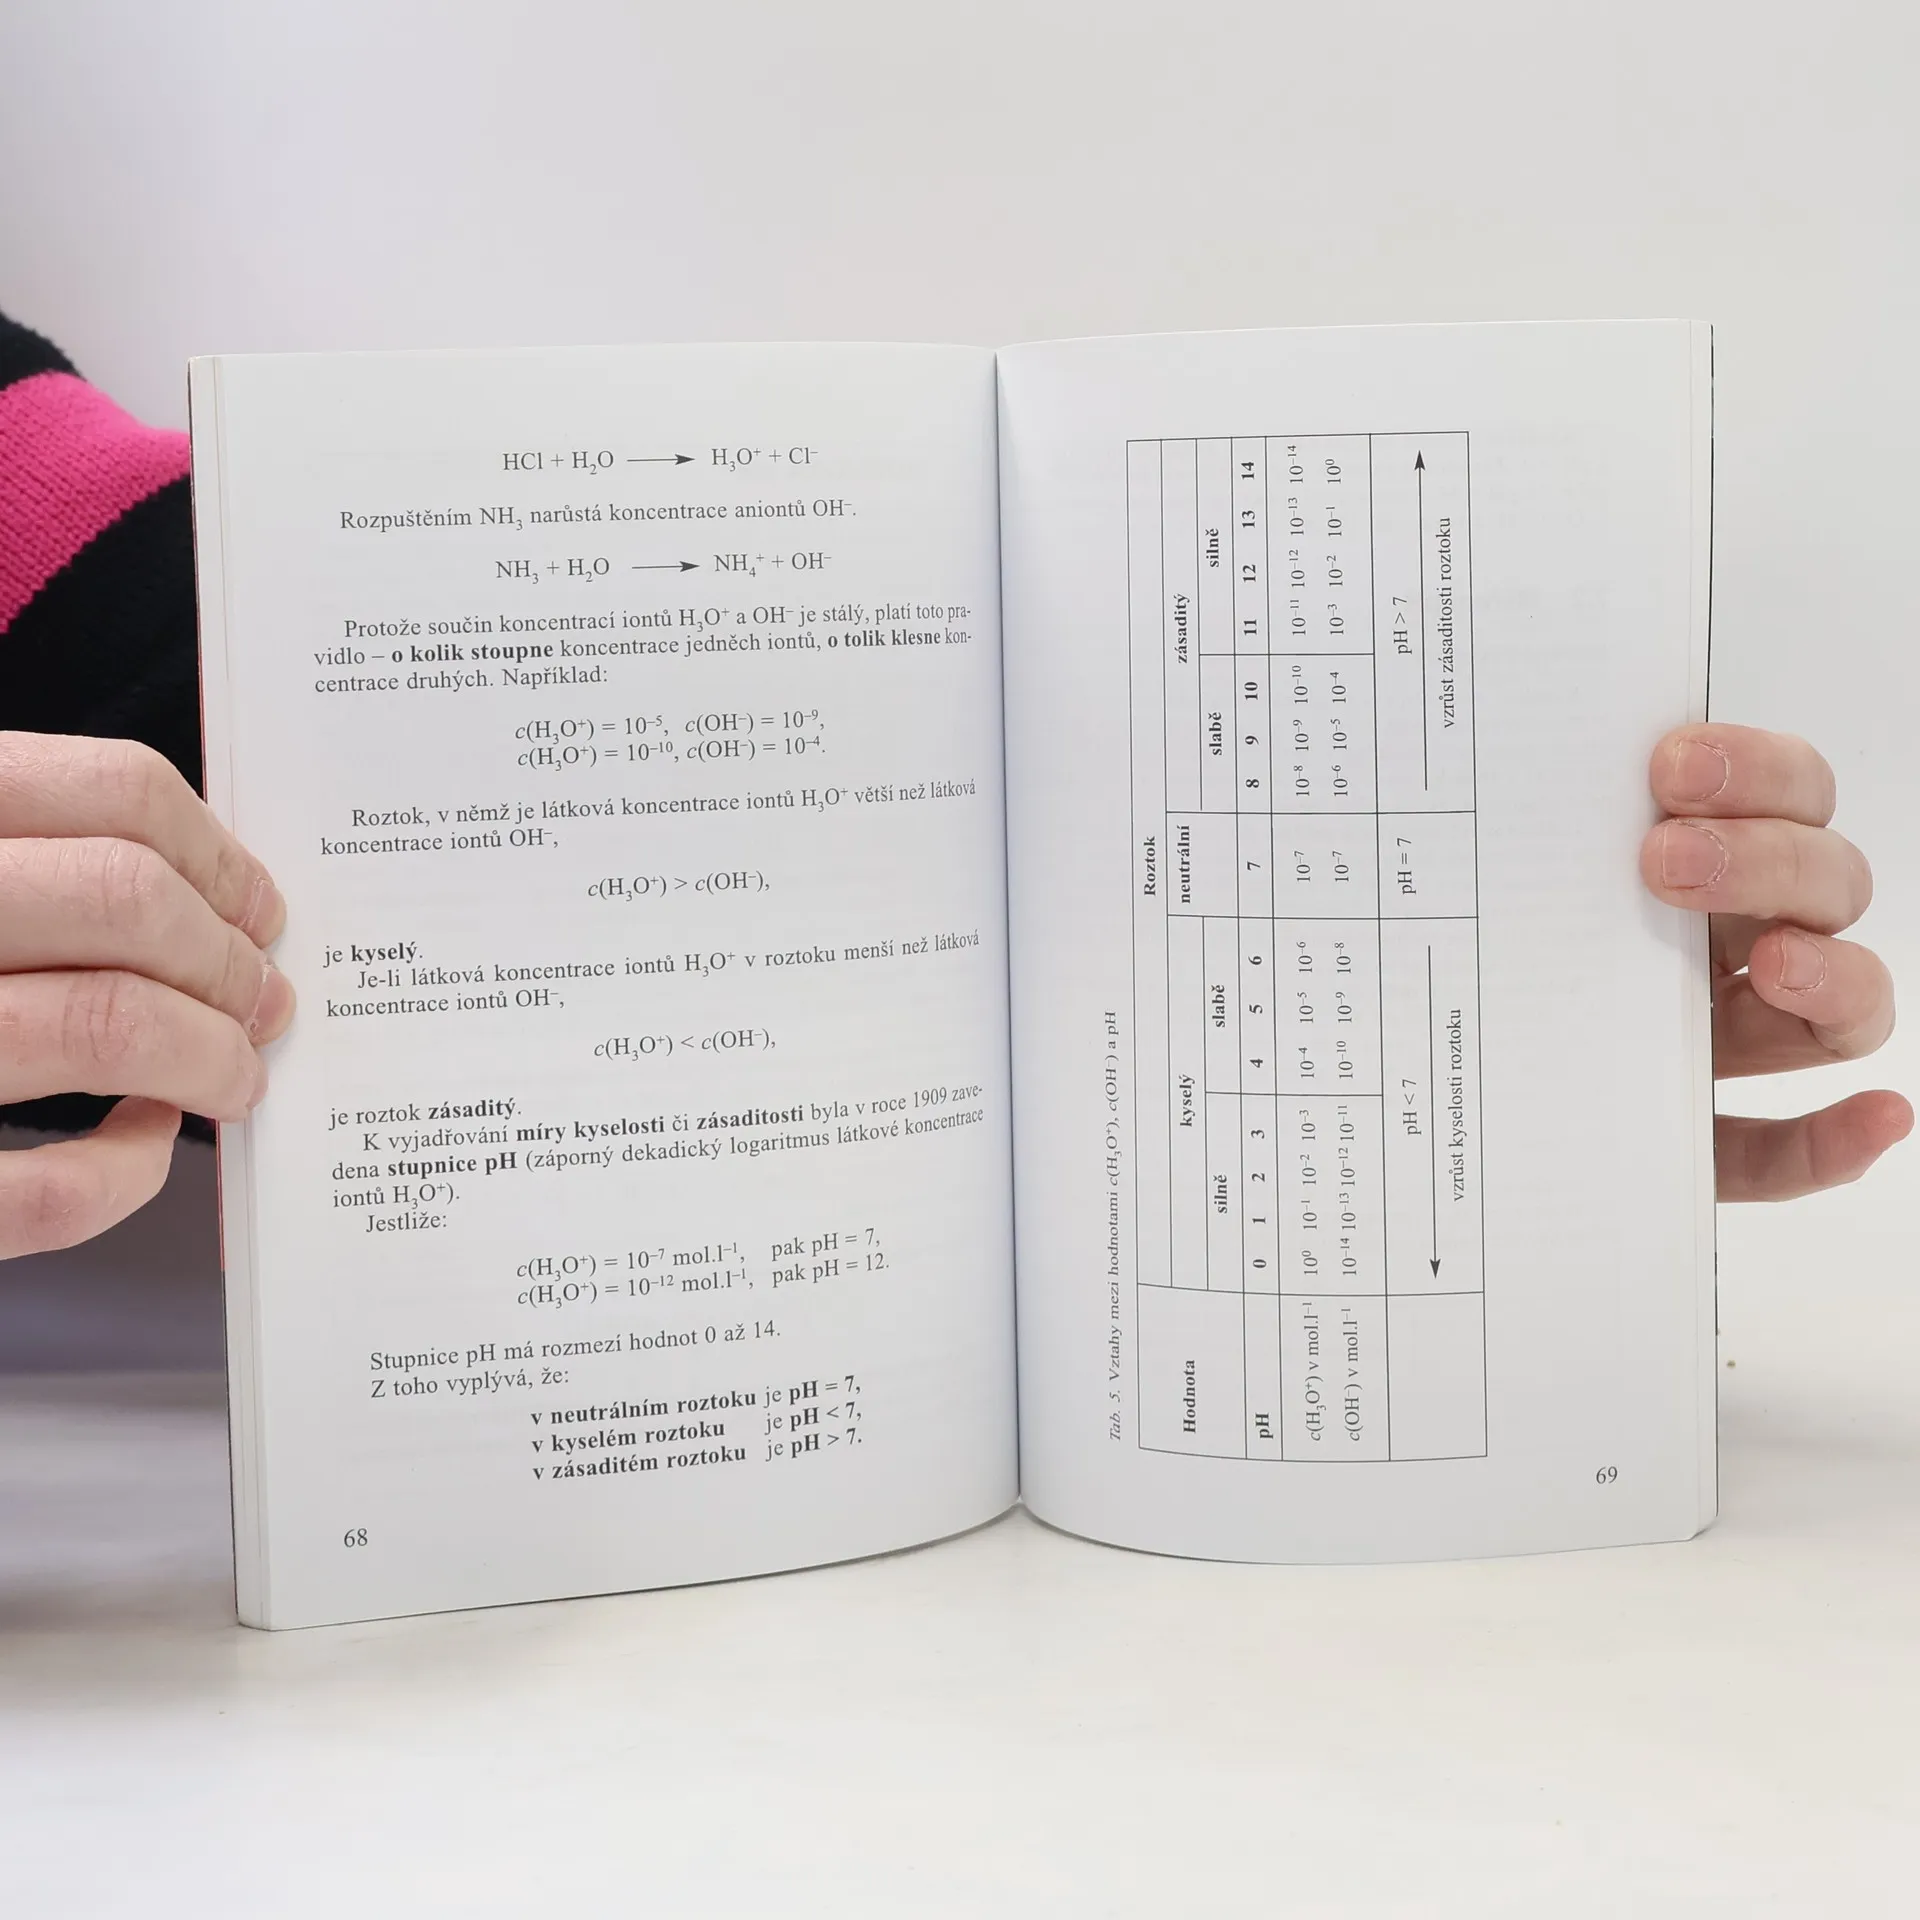 HCl + H₂O ⟶ H₃O⁺ + Cl⁻
Rozpuštěním NH₃ narůstá koncentrace aniontů OH⁻.
NH₃ + H₂O ⟶ NH₄⁺ + OH⁻
Protože součin koncentrací iontů H₃O⁺ a OH⁻ je stálý, platí toto pra-
vidlo – o kolik stoupne koncentrace jedněch iontů, o tolik klesne kon-
centrace druhých. Například:
c(H₃O⁺) = 10⁻⁵, c(OH⁻) = 10⁻⁹,
c(H₃O⁺) = 10⁻¹⁰, c(OH⁻) = 10⁻⁴.
Roztok, v němž je látková koncentrace iontů H₃O⁺ větší než látková
koncentrace iontů OH⁻,
c(H₃O⁺) > c(OH⁻),
je kyselý.
Je-li látková koncentrace iontů H₃O⁺ v roztoku menší než látková
koncentrace iontů OH⁻,
c(H₃O⁺) < c(OH⁻),
je roztok zásaditý.
K vyjadřování míry kyselosti či zásaditosti byla v roce 1909 zave-
dena stupnice pH (záporný dekadický logaritmus látkové koncentrace
iontů H₃O⁺).
Jestliže:
c(H₃O⁺) = 10⁻⁷ mol.l⁻¹, pak pH = 7,
c(H₃O⁺) = 10⁻¹² mol.l⁻¹, pak pH = 12.
Stupnice pH má rozmezí hodnot 0 až 14.
Z toho vyplývá, že:
v neutrálním roztoku je pH = 7,
v kyselém roztoku je pH < 7,
v zásaditém roztoku je pH > 7.
68
Tab. 5. Vztahy mezi hodnotami c(H₃O⁺), c(OH⁻) a pH
Roztok
Hodnota kyselý neutrální zásaditý
silně slabě slabě silně
pH 0 1 2 3 4 5 6 7 8 9 10 11 12 13 14
c(H₃O⁺) v mol.l⁻¹ 10⁰ 10⁻¹ 10⁻² 10⁻³ 10⁻⁴ 10⁻⁵ 10⁻⁶ 10⁻⁷ 10⁻⁸ 10⁻⁹ 10⁻¹⁰ 10⁻¹¹ 10⁻¹² 10⁻¹³ 10⁻¹⁴
c(OH⁻) v mol.l⁻¹ 10⁻¹⁴ 10⁻¹³ 10⁻¹² 10⁻¹¹ 10⁻¹⁰ 10⁻⁹ 10⁻⁸ 10⁻⁷ 10⁻⁶ 10⁻⁵ 10⁻⁴ 10⁻³ 10⁻² 10⁻¹ 10⁰
pH < 7 pH = 7 pH > 7
vzrůst kyselosti roztoku vzrůst zásaditosti roztoku
69